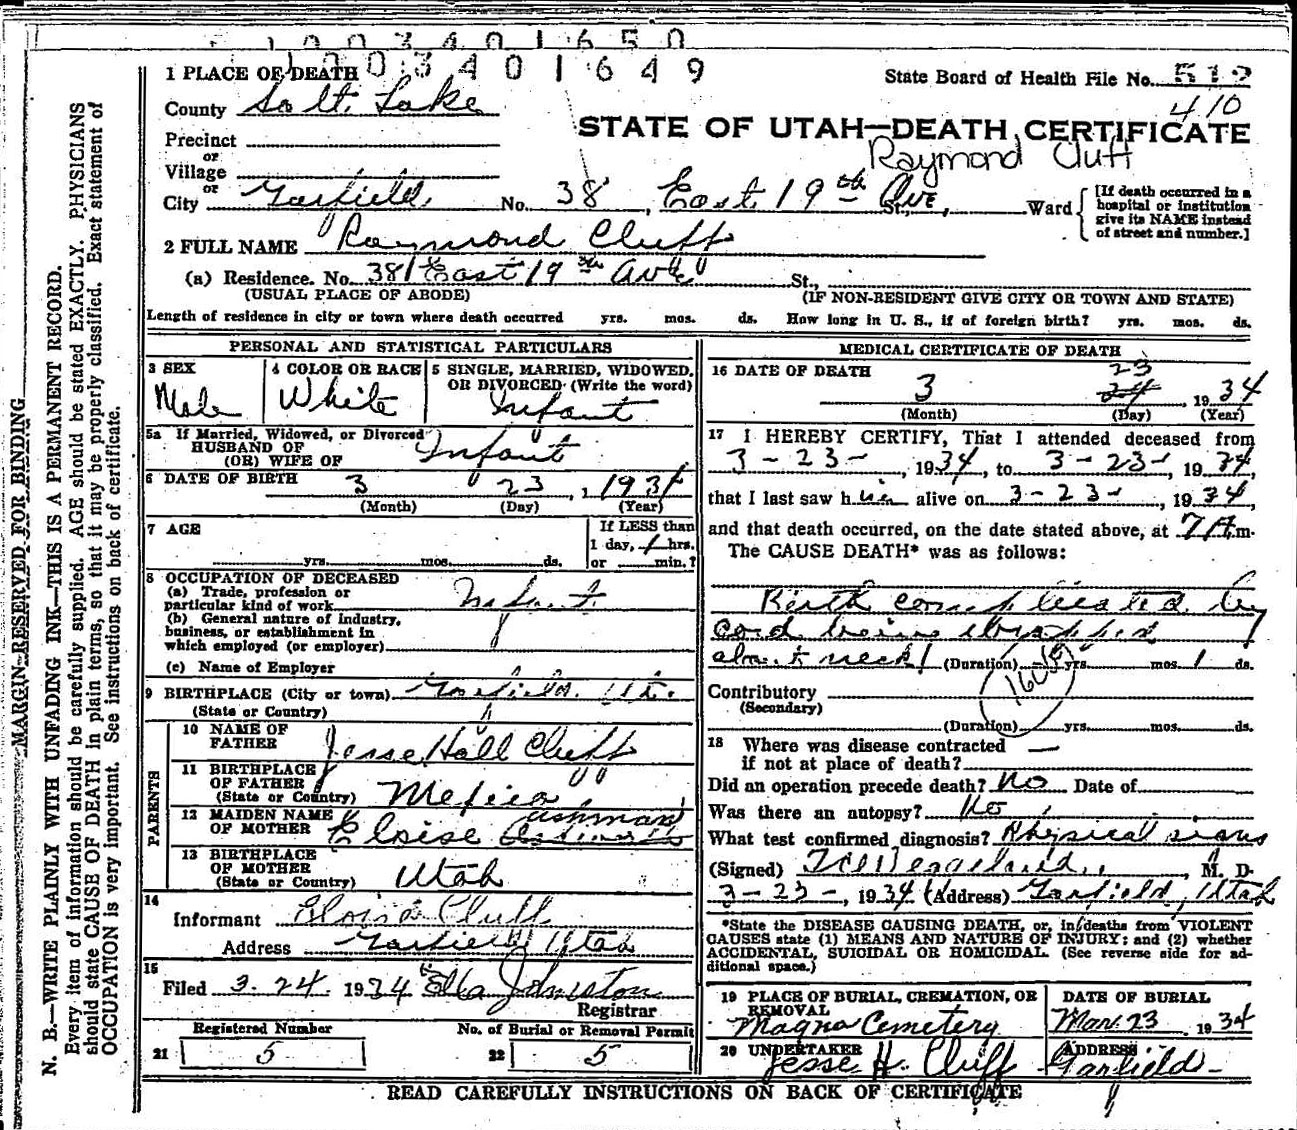 1003401650
1003401649
1 PLACE OF DEATH
State Board of Health File No. 512
410
County Salt Lake
STATE OF UTAH—DEATH CERTIFICATE
Raymond Cluff
Precinct
or
Village
or
City Garfield No. 38, East 19th Ave, St., Ward
[If death occurred in a hospital or institution give its NAME instead of street and number.]
2 FULL NAME Raymond Cluff
(a) Residence. No. 381 East 19th Ave St.,
(USUAL PLACE OF ABODE) (IF NON-RESIDENT GIVE CITY OR TOWN AND STATE)
Length of residence in city or town where death occurred yrs. mos. ds. How long in U. S., if of foreign birth? yrs. mos. ds.
PERSONAL AND STATISTICAL PARTICULARS
3 SEX
Male
4 COLOR OR RACE
White
5 SINGLE, MARRIED, WIDOWED, OR DIVORCED (Write the word)
Infant
5a If Married, Widowed, or Divorced
HUSBAND OF
(OR) WIFE OF
Infant
6 DATE OF BIRTH 3 23, 1934
(Month) (Day) (Year)
7 AGE
yrs. mos. ds.
If LESS than
1 day, 1 hrs.
or min.?
8 OCCUPATION OF DECEASED
(a) Trade, profession or
particular kind of work Infant
(b) General nature of industry,
business, or establishment in
which employed (or employer)
(c) Name of Employer
9 BIRTHPLACE (City or town) Garfield, Ut.
(State or Country)
PARENTS
10 NAME OF
FATHER Jesse Hall Cluff
11 BIRTHPLACE
OF FATHER
(State or Country) Mexico
12 MAIDEN NAME
OF MOTHER Eloise Ashman
13 BIRTHPLACE
OF MOTHER
(State or Country) Utah
14
Informant Eloise Cluff
Address Garfield, Utah
15
Filed 3-24, 1934 Ella Johnston
Registrar
Registered Number
21 5
No. of Burial or Removal Permit
22 5
MEDICAL CERTIFICATE OF DEATH
16 DATE OF DEATH
3 23 24 1934
(Month) (Day) (Year)
17 I HEREBY CERTIFY, That I attended deceased from
3-23-, 1934, to 3-23-, 1934,
that I last saw him alive on 3-23-, 1934,
and that death occurred, on the date stated above, at 7 A m.
The CAUSE DEATH* was as follows:
Birth complicated by
cord being wrapped
about neck! (Duration) yrs. mos. 1 ds.
Contributory
(Secondary)
(Duration) yrs. mos. ds.
18 Where was disease contracted
if not at place of death? —
Did an operation precede death? No Date of
Was there an autopsy? No
What test confirmed diagnosis? Physical signs
(Signed) M. D.
3-23-, 1934 (Address) Garfield, Utah
*State the DISEASE CAUSING DEATH, or, in deaths from VIOLENT
CAUSES state (1) MEANS AND NATURE OF INJURY; and (2) whether
ACCIDENTAL, SUICIDAL OR HOMICIDAL. (See reverse side for ad-
ditional space.)
19 PLACE OF BURIAL, CREMATION, OR
REMOVAL
Magna Cemetery
DATE OF BURIAL
Mar. 23, 1934
20 UNDERTAKER
Jesse H. Cluff
ADDRESS
Garfield
READ CAREFULLY INSTRUCTIONS ON BACK OF CERTIFICATE
MARGIN RESERVED FOR BINDING
N. B.—WRITE PLAINLY WITH UNFADING INK—THIS IS A PERMANENT RECORD.
Every item of information should be carefully supplied. AGE should be stated EXACTLY. PHYSICIANS
should state CAUSE OF DEATH in plain terms, so that it may be properly classified. Exact statement of
OCCUPATION is very important. See instructions on back of certificate.